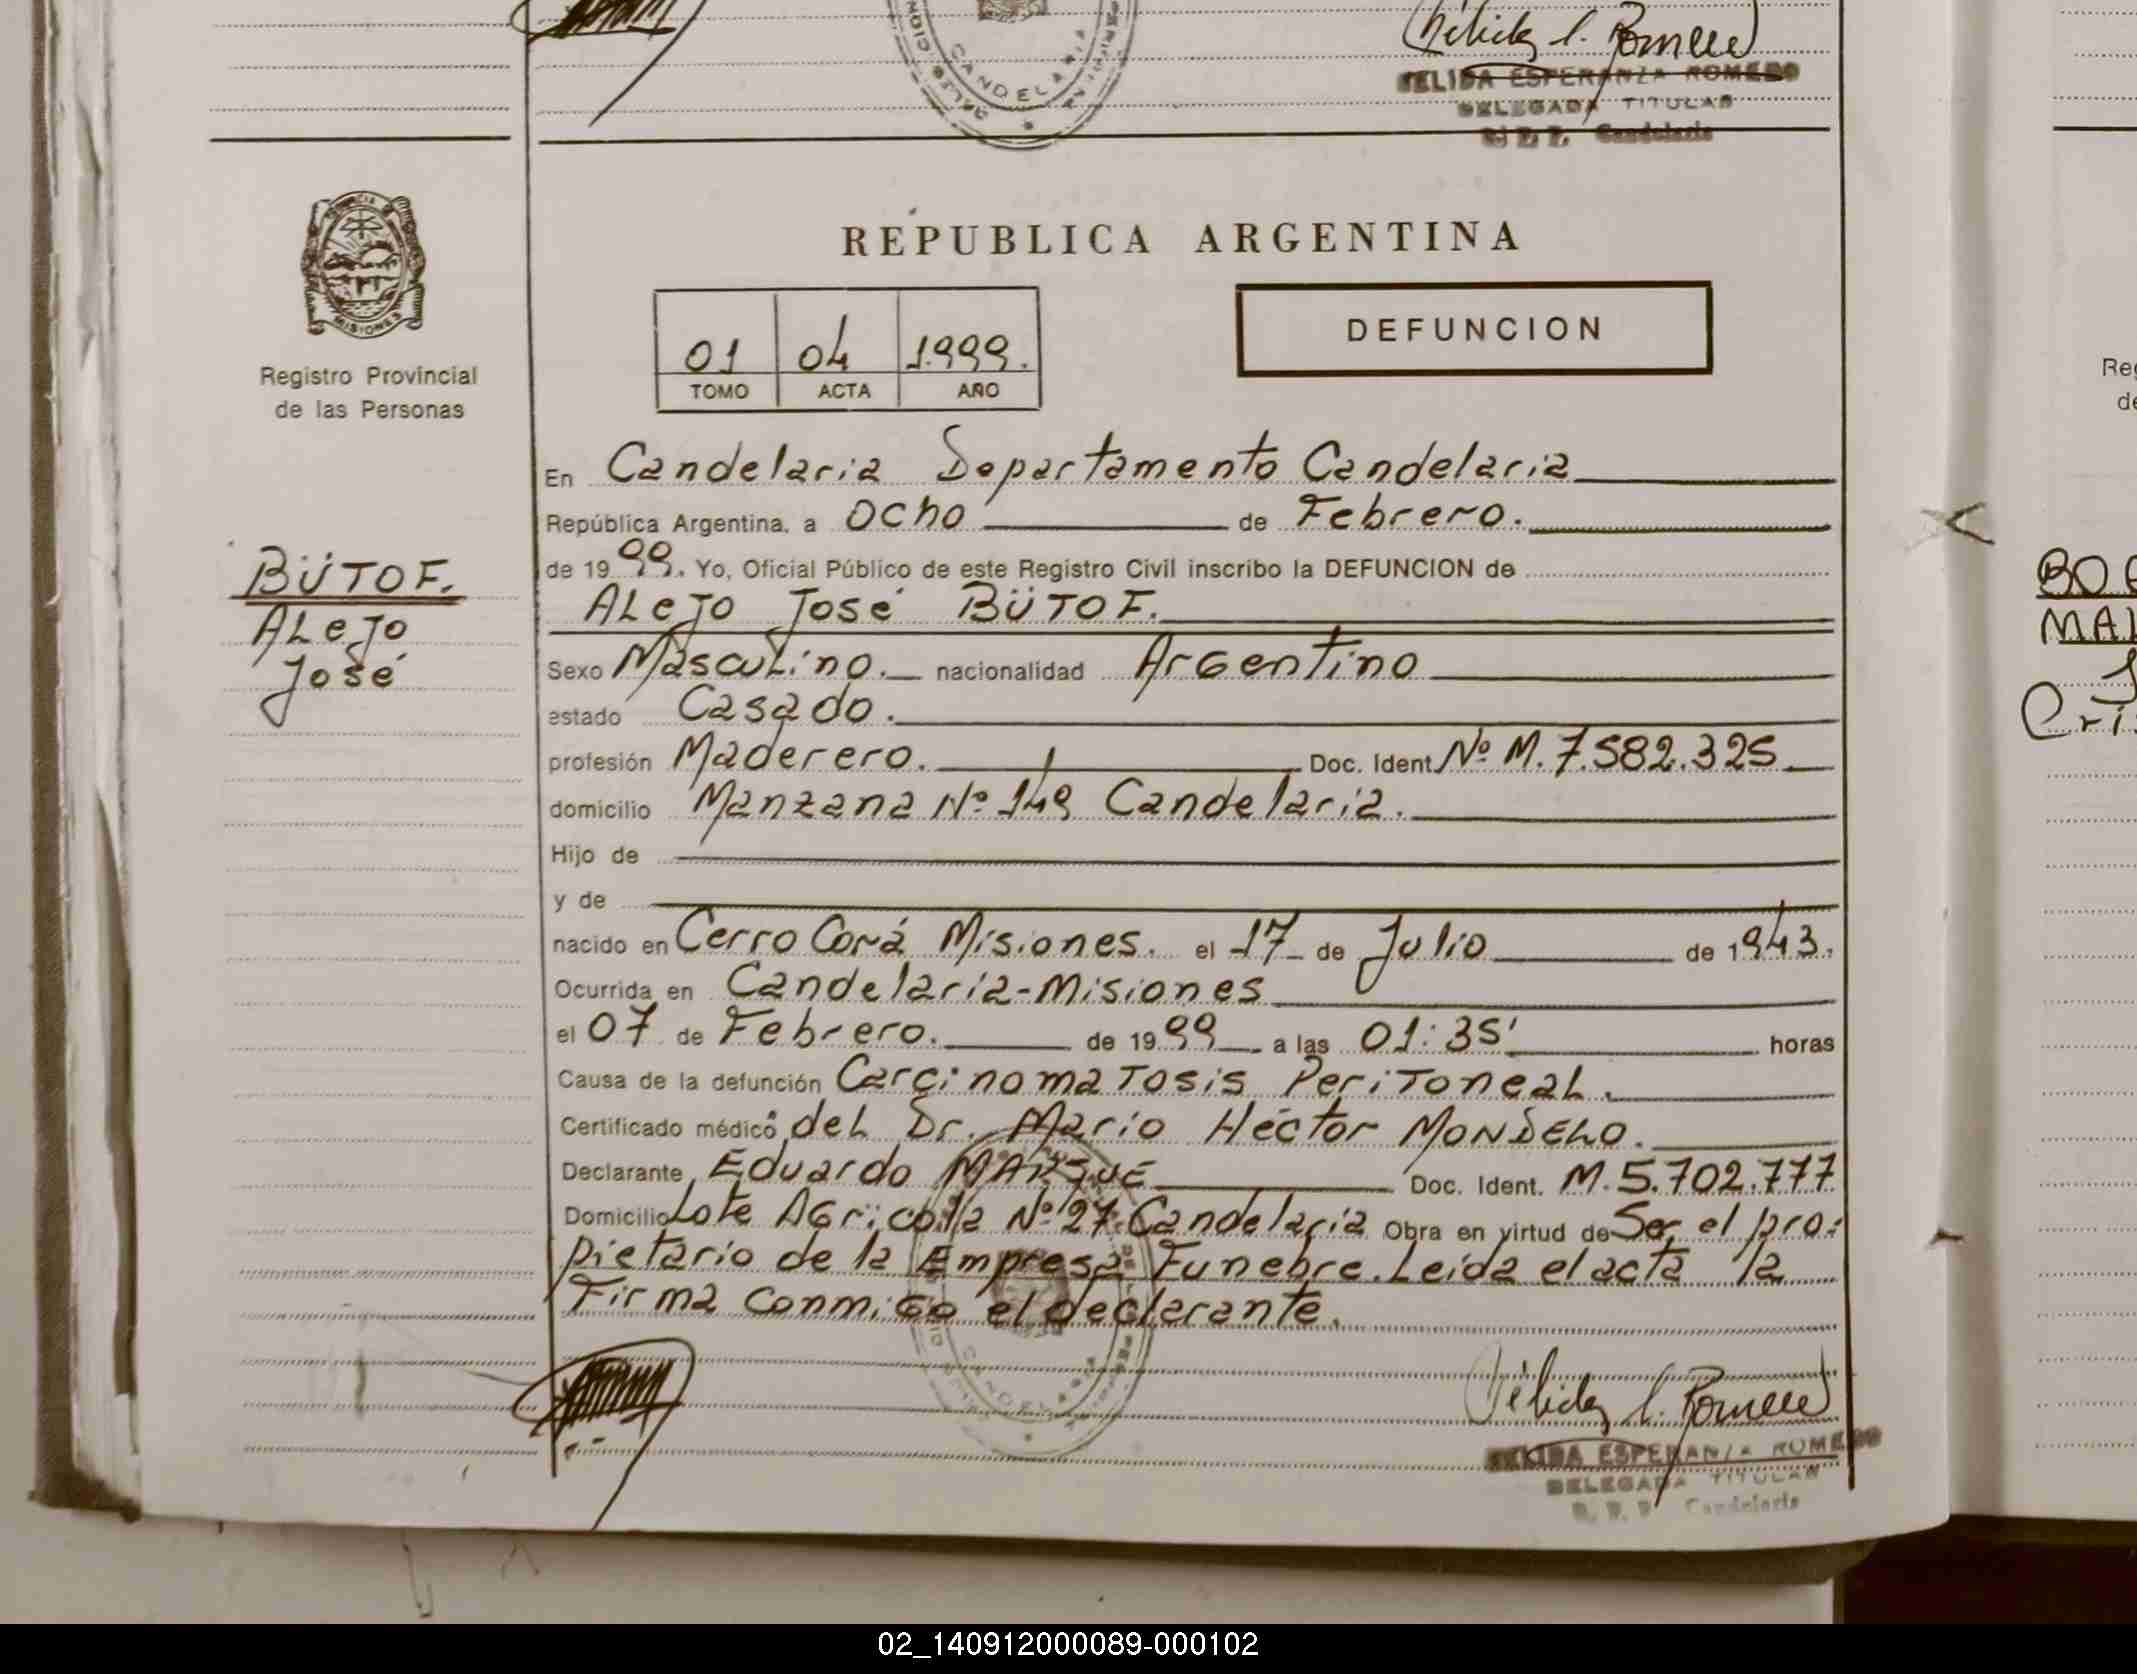 CANDELARIA
NELIDA ESPERANZA ROMERO
DELEGADA TITULAR
R. P. P. Candelaria
PROVINCIA DE
MISIONES
Registro Provincial
de las Personas
BÜTOF.
ALeJo
José
REPUBLICA ARGENTINA
01 04 1.999.
TOMO ACTA AÑO
DEFUNCION
En Candelaria Departamento Candelaria
República Argentina, a ocho de Febrero.
de 1999. Yo, Oficial Público de este Registro Civil inscribo la DEFUNCION de
ALeJo José BÜTOF.
Sexo MascuLino. nacionalidad Argentino
estado Casado.
profesión Maderero. Doc. Ident Nº M. 7.582.325
domicilio Manzana Nº 149 Candelaria.
Hijo de
y de
nacido en Cerro Corá Misiones. el 17 de Julio de 1943.
Ocurrida en Candelaria-Misiones
el 07 de Febrero. de 1999 a las 01:35' horas
Causa de la defunción Carcinomatosis Peritoneal.
Certificado médico del Dr. Mario Héctor MONDELO.
Declarante Eduardo MARQUE Doc. Ident. M. 5.702.777
Domicilio Lote Agricolla Nº 27 Candelaria Obra en virtud de Ser el pro:
pietario de la Empresa Funebre. Leída el acta la
Firma conmigo el declarante.
CANDELARIA
NELIDA ESPERANZA ROMERO
DELEGADA TITULAR
R. P. P. Candelaria
02_140912000089-000102